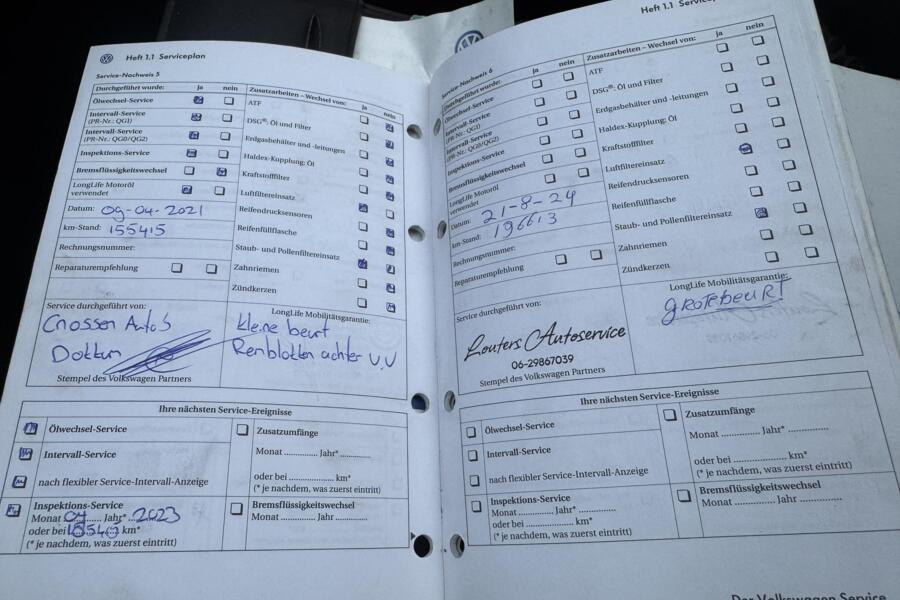 Heft 1.1 Serviceplan
Service-Nachweis 5
Durchgeführt wurde: ja nein
Ölwechsel-Service
Intervall-Service
(PR-Nr.: QG1)
Intervall-Service
(PR-Nr.: QG0/QG2)
Inspektions-Service
Bremsflüssigkeitswechsel
LongLife Motoröl
verwendet
Datum: 09-04-2021
km-Stand: 155415
Rechnungsnummer:
Reparaturempfehlung
Zusatzarbeiten – Wechsel von: ja nein
ATF
DSG®: Öl und Filter
Erdgasbehälter und -leitungen
Haldex-Kupplung: Öl
Kraftstofffilter
Luftfiltereinsatz
Reifendrucksensoren
Reifenfüllflasche
Staub- und Pollenfiltereinsatz
Zahnriemen
Zündkerzen
Service durchgeführt von:
Cnossen Auto's
Dokkum
Stempel des Volkswagen Partners
LongLife Mobilitätsgarantie:
kleine beurt
Remblokken achter V.V
Ihre nächsten Service-Ereignisse
Ölwechsel-Service
Intervall-Service
nach flexibler Service-Intervall-Anzeige
Inspektions-Service
Monat 04 Jahr* 2023
oder bei km*
(* je nachdem, was zuerst eintritt)
Zusatzumfänge
Monat Jahr*
oder bei km*
(* je nachdem, was zuerst eintritt)
Bremsflüssigkeitswechsel
Monat Jahr
Heft 1.1 Servicep
Service-Nachweis 6
Durchgeführt wurde: ja nein
Ölwechsel-Service
Intervall-Service
(PR-Nr.: QG1)
Intervall-Service
(PR-Nr.: QG0/QG2)
Inspektions-Service
Bremsflüssigkeitswechsel
LongLife Motoröl
verwendet
Datum: 21-8-24
km-Stand: 196613
Rechnungsnummer:
Reparaturempfehlung
Zusatzarbeiten – Wechsel von: ja nein
ATF
DSG®: Öl und Filter
Erdgasbehälter und -leitungen
Haldex-Kupplung: Öl
Kraftstofffilter
Luftfiltereinsatz
Reifendrucksensoren
Reifenfüllflasche
Staub- und Pollenfiltereinsatz
Zahnriemen
Zündkerzen
Service durchgeführt von:
Louters Autoservice
06-29867039
Stempel des Volkswagen Partners
LongLife Mobilitätsgarantie:
grotebeurt
Ihre nächsten Service-Ereignisse
Ölwechsel-Service
Intervall-Service
nach flexibler Service-Intervall-Anzeige
Inspektions-Service
Monat Jahr*
oder bei km*
(* je nachdem, was zuerst eintritt)
Zusatzumfänge
Monat Jahr*
oder bei km*
(* je nachdem, was zuerst eintritt)
Bremsflüssigkeitswechsel
Monat Jahr
Der Volkswagen Service